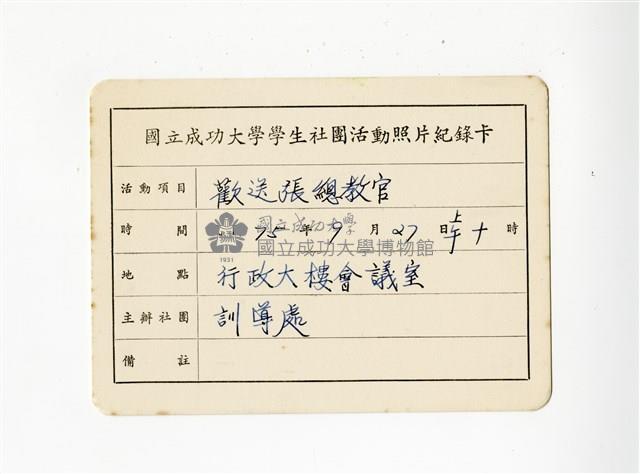 國立成功大學學生社團活動照片紀錄卡
活動項目 歡送張總教官
時間 75年9月27日上午十時
國立成功大學
國立成功大學博物館
1931
地點 行政大樓會議室
主辦社團 訓導處
備註